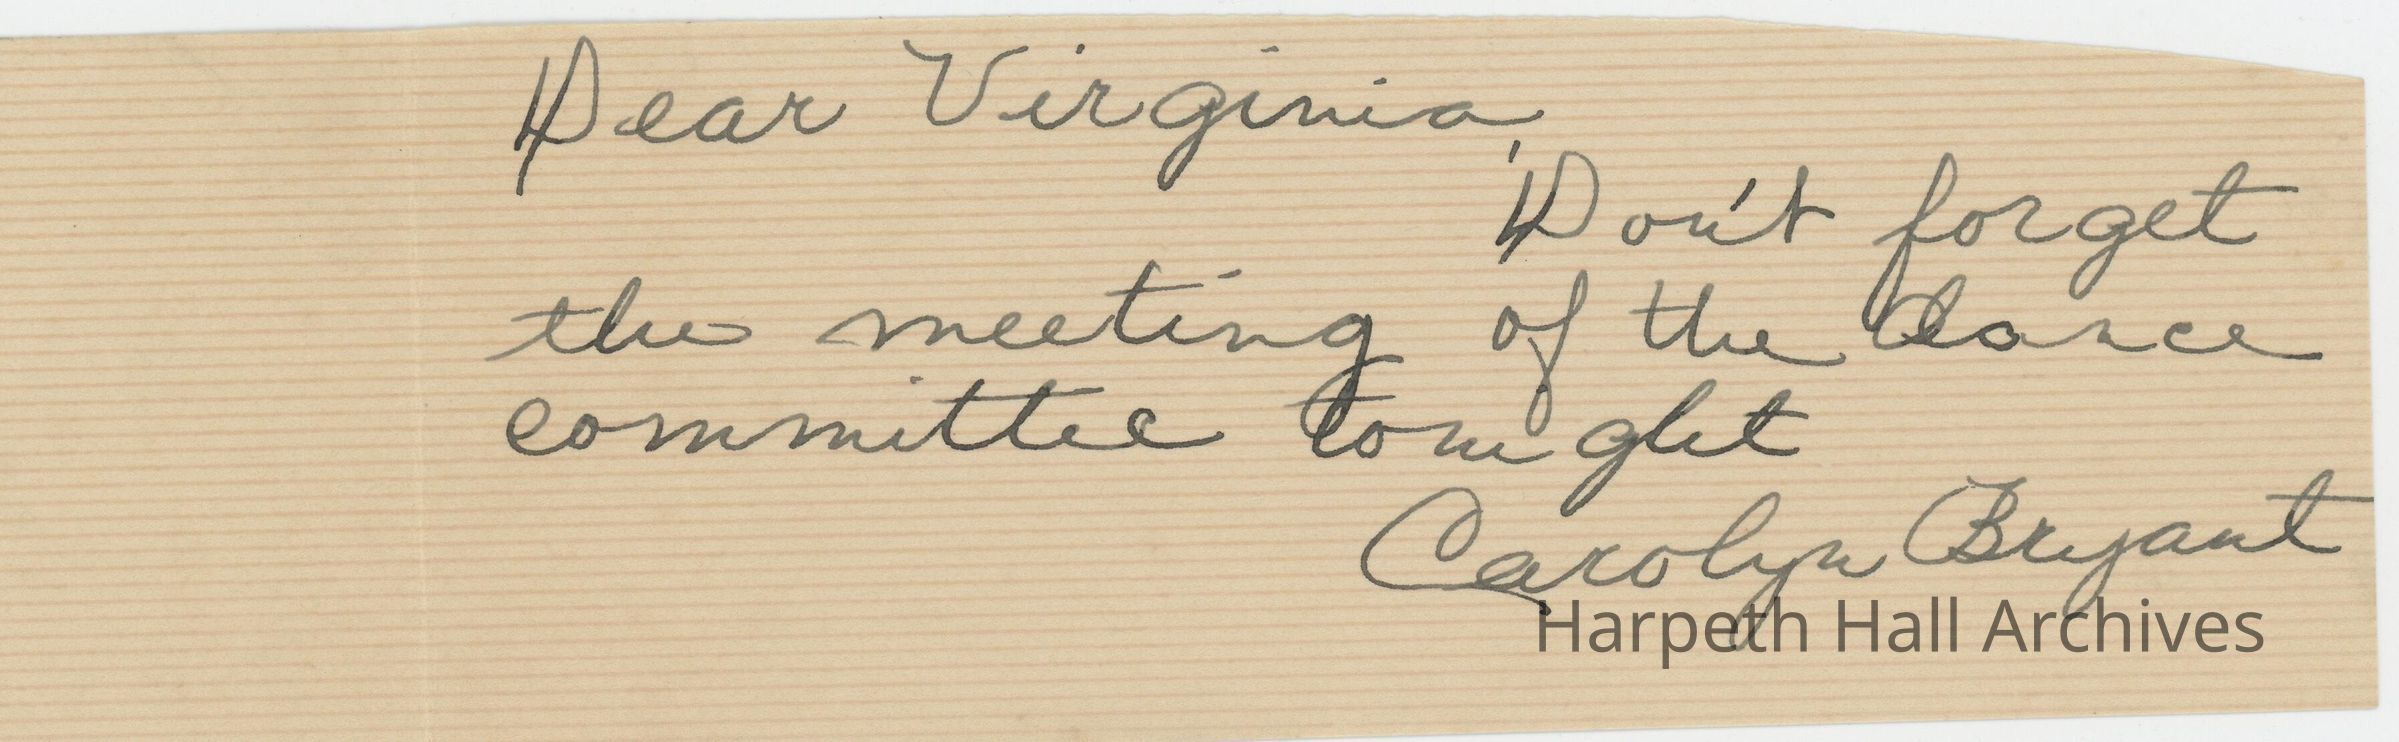 Dear Virginia,
Don't forget
the meeting of the dance
committee tonight
Carolyn Bryant
Harpeth Hall Archives